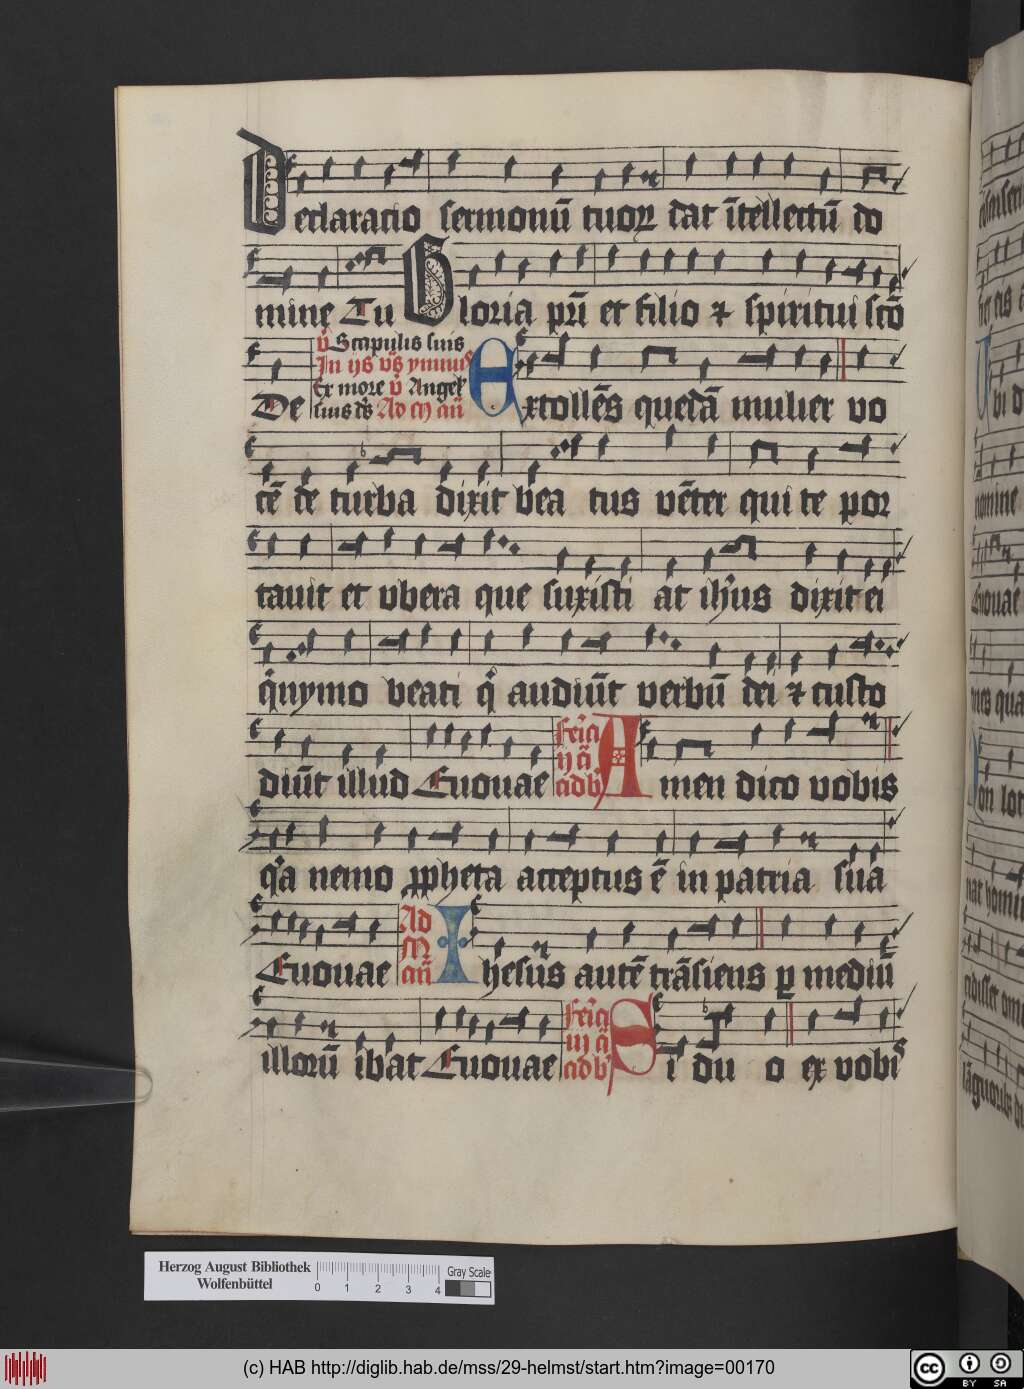 Declaracio sermonū tuoꝝ dat ītellectū do
mine Tu Gloria pr̄i et filio ⁊ spiritui sctō
℣ Scapulis suis
In ijs vs̄ ymnus
Ex more ℣ Angel᷒
suis ds̄ Ad m̄ an̄
De Extollēs quedā mulier vo
cē de turba dixit bea tus vēter qui te por
tauit et vbera que suxisti at ihūs dixit ei
qͥnymo beati qͥ audiūt verbū dei ⁊ custo
diūt illud Euouae
feria
ij ā
ad b
Amen dico vobis
qͣa nemo ꝓpheta acceptus ē in patria sua
Euouae
Ad
m̄
an̄
Ihesus autē trāsiens ꝑ mediū
illorū ibat Euouae
feria
iij ā
ad b
Si du o ex vobis
Herzog August Bibliothek
Wolfenbüttel
0 1 2 3 4
Gray Scale
(c) HAB http://diglib.hab.de/mss/29-helmst/start.htm?image=00170
cc BY SA